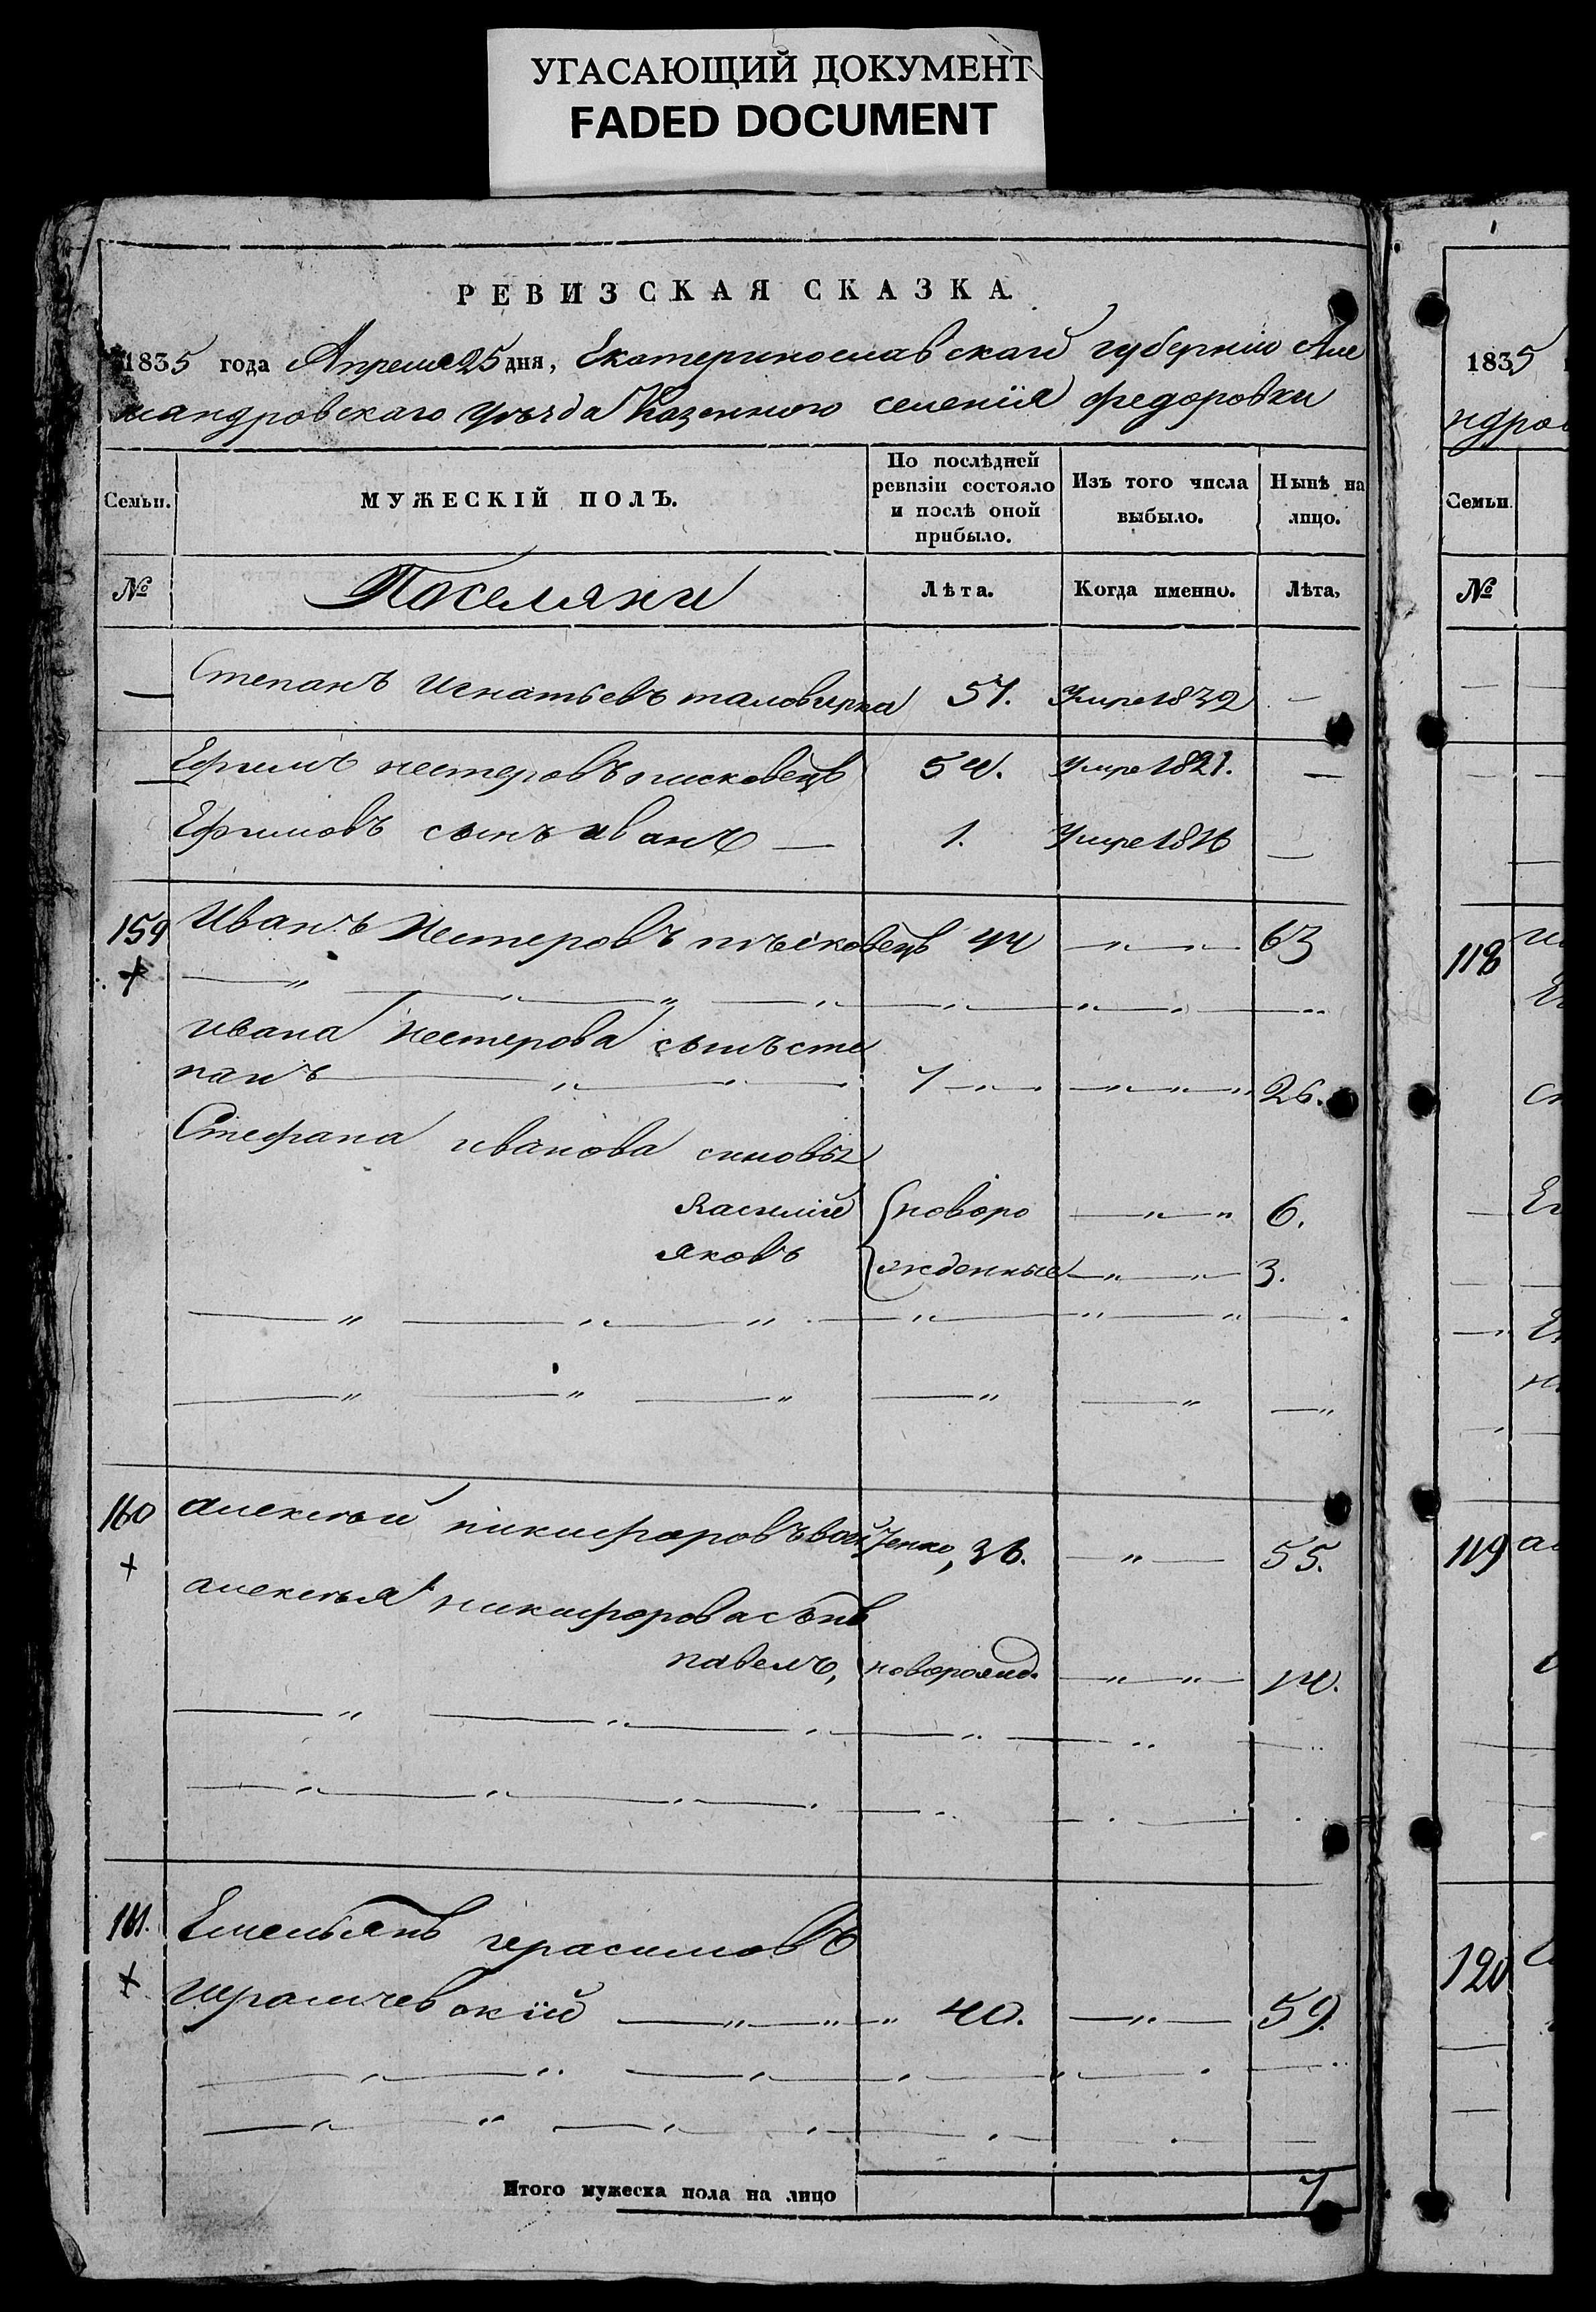 УГАСАЮЩИЙ ДОКУМЕНТ
FADED DOCUMENT
РЕВИЗСКАЯ СКАЗКА.
1835 года Апреля 25 дня, Екатеринославскаго губернии Але
ксандровскаго уѣзда Казенного селенія федоровки
Семьи.
МУЖЕСКІЙ ПОЛЪ.
По послѣдней ревизіи состояло и послѣ оной прибыло.
Изъ того числа выбыло.
Нынѣ на лицо.
№
Поселяни
Лѣта.
Когда именно.
Лѣта,
Степанъ Игнатьевъ 57. Умре 1832 —
Ефимъ нестеровъ писковецъ 54. Умре 1821. —
Ефимовъ сынъ иванъ — 1. Умре 1816 —
159 Иванъ Нестеровъ пѣсковецъ 44 — 63
ивана Нестерова сынъ сте
панъ 7 — 26.
Стефана иванова синовья
Василий новоро 6.
яковъ жденные 3.
160 алексѣй никифоровъ 36. — 55.
алексѣя никифорова сынъ
павелъ, новорожд. — 14.
161. Емельянъ герасимовъ
40. — 59.
Итого мужеска пола на лицо 7
1835
ндров
Семьи.
№
118
119
120